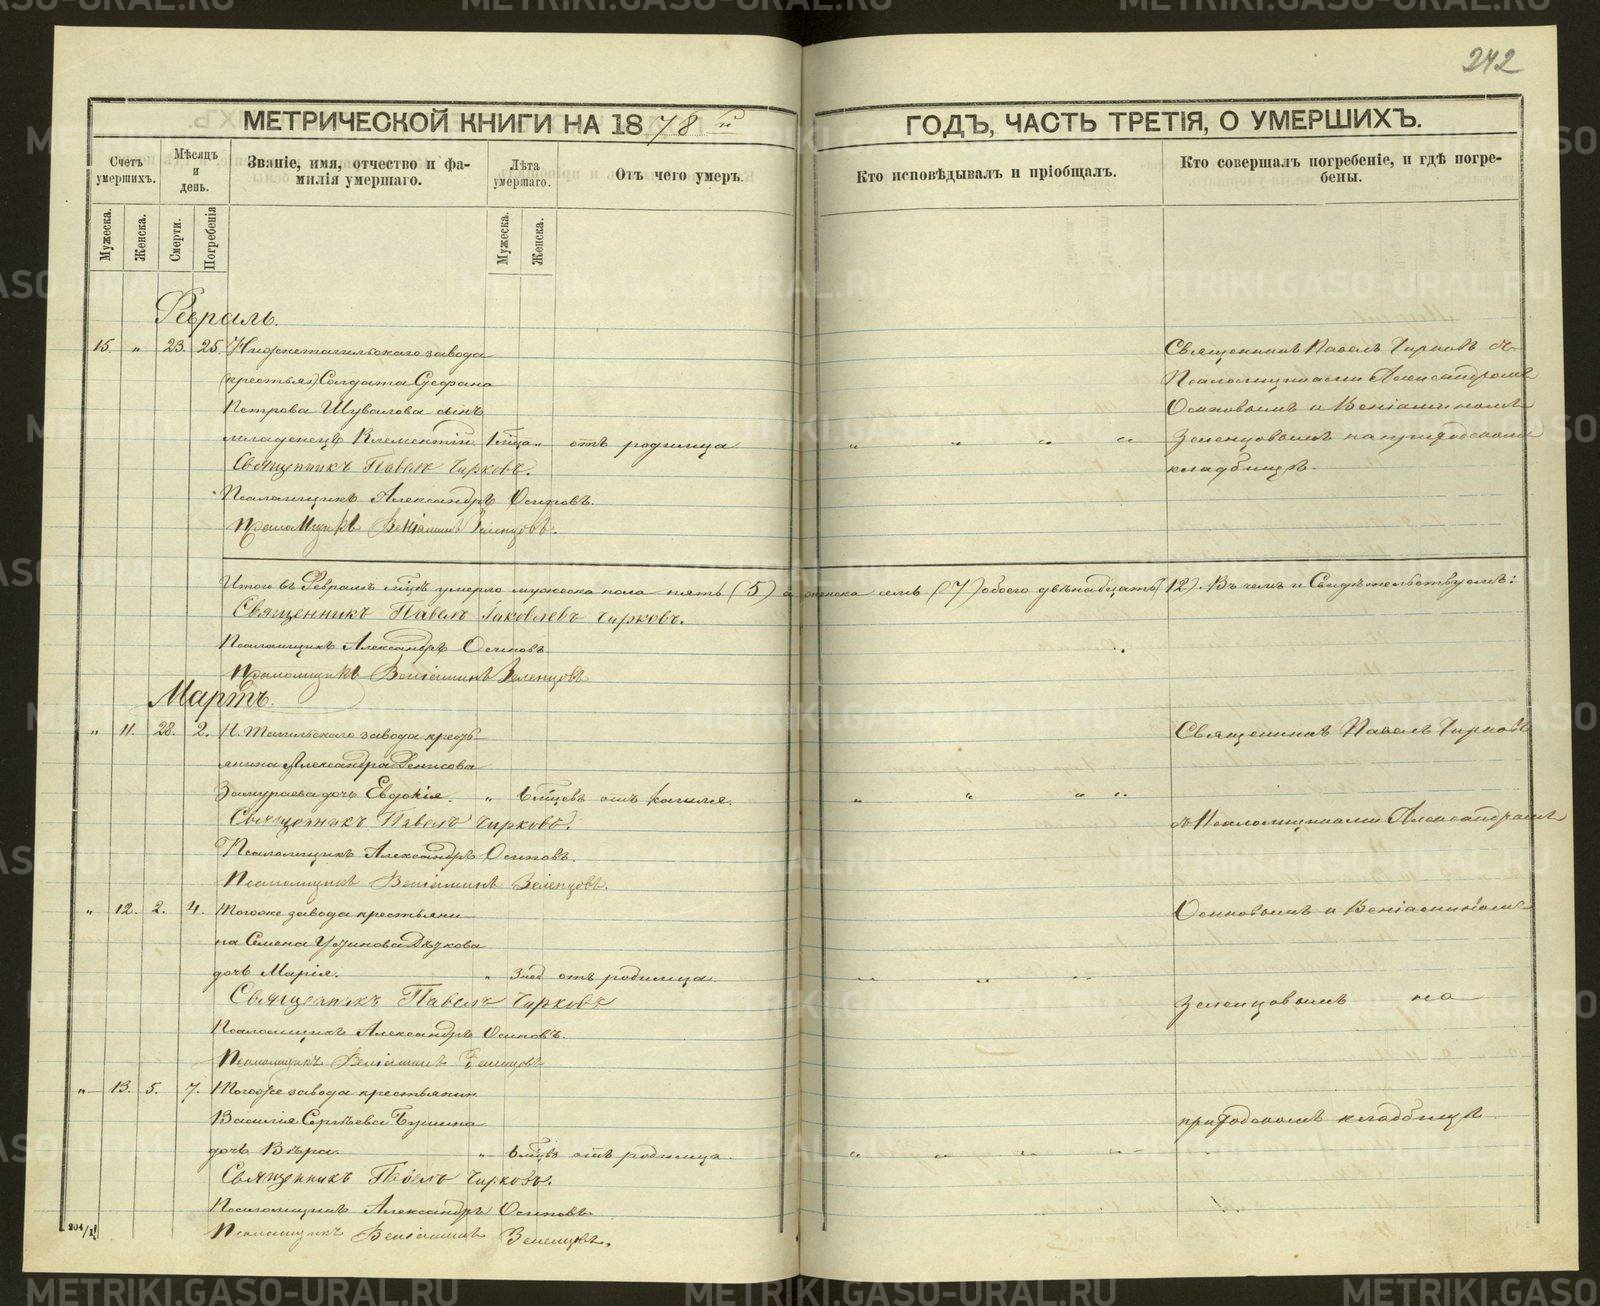 242
МЕТРИЧЕСКОЙ КНИГИ НА 1878 й
ГОДЪ, ЧАСТЬ ТРЕТІЯ, О УМЕРШИХЪ.
Счетъ умершихъ.
Мѣсяцъ и день.
Званіе, имя, отчество и фамилія умершаго.
Лѣта умершаго.
Отъ чего умеръ.
Кто исповѣдывалъ и пріобщалъ.
Кто совершалъ погребеніе, и гдѣ погребены.
Мужеска.
Женска.
Смерти.
Погребенія
Мужеска.
Женска.
Февраль.
15. " 23. 25. Нижнетагильскаго завода
(крестьян) Солдата Стефана
Петрова Шувалова сынъ
младенецъ Климентій. 1 " отъ родимца " " " "
Священникъ Павелъ Чирковъ.
Псаломщикъ Александръ Осиповъ.
Псаломщикъ Веніаминъ Зеленцовъ.
Священникъ Павелъ Чирковъ съ
Псаломщиками Александромъ
Осиповымъ и Веніаминомъ
Зеленцовымъ на приходскомъ
кладбищѣ.
Итого въ Февралѣ мѣцѣ умерло мужеска пола пять (5) а женска семь (7) обоего двѣнадцать (12). Въ чемъ и Свидѣтельствуемъ:
Священникъ Павелъ Іаковлевъ Чирковъ.
Псаломщикъ Александръ Осиповъ.
Псаломщикъ Веніаминъ Зеленцовъ
Мартъ.
" 11. 28. 2. Н. Тагильскаго завода кресть-
янина Александра Денисова
дочь Евдокія. " 6 мѣцевъ отъ кашля. " " " "
Священникъ Павелъ Чирковъ.
Псаломщикъ Александръ Осиповъ.
Псаломщикъ Веніаминъ Зеленцовъ.
Священникъ Павелъ Чирковъ
съ Псаломщиками Александромъ
" 12. 2. 4. Тогоже завода крестьяни-
на Семена
дочь Марія. " 3 нед отъ родимца. " " "
Священникъ Павелъ Чирковъ
Псаломщикъ Александръ Осиповъ.
Псаломщикъ Веніаминъ Зеленцовъ
Осиповымъ и Веніаминомъ
Зеленцовымъ на
" 13. 5. 7. Тогоже завода крестьянин
Василія Сергѣева
дочь Вѣра. " 6 мѣцъ отъ родимца. " " " "
Священникъ Павелъ Чирковъ.
Псаломщикъ Александръ Осиповъ.
Псаломщикъ Веніаминъ Зеленцовъ.
приходскомъ кладбищѣ.
204/1
METRIKI.GASO-URAL.RU